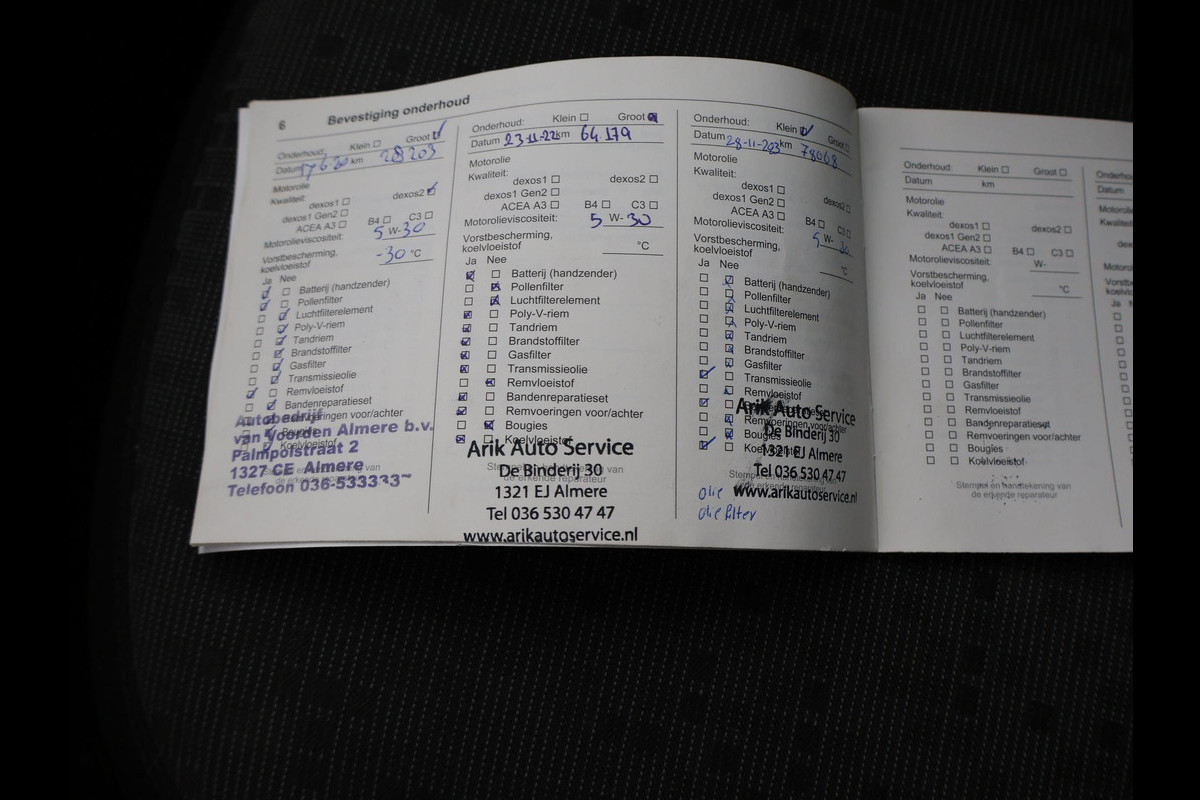 6 Bevestiging onderhoud
Onderhoud: Klein Groot
Datum 17 6 20 km 28203
Motorolie
Kwaliteit: dexos1 dexos2
dexos1 Gen2
ACEA A3 B4 C3
Motorolieviscositeit: 5 W- 30
Vorstbescherming,
koelvloeistof -30 °C
Ja Nee
Batterij (handzender)
Pollenfilter
Luchtfilterelement
Poly-V-riem
Tandriem
Brandstoffilter
Gasfilter
Transmissieolie
Remvloeistof
Bandenreparatieset
Remvoeringen voor/achter
Bougies
Koelvloeistof
Autobedrijf
van Voorden Almere b.v.
Palmpolstraat 2
1327 CE Almere
Telefoon 036-533333
Stempel en handtekening van
de erkende reparateur
Onderhoud: Klein Groot
Datum 23-11-22 km 64179
Motorolie
Kwaliteit:
dexos1 dexos2
dexos1 Gen2
ACEA A3 B4 C3
Motorolieviscositeit: 5 W- 30
Vorstbescherming,
koelvloeistof °C
Ja Nee
Batterij (handzender)
Pollenfilter
Luchtfilterelement
Poly-V-riem
Tandriem
Brandstoffilter
Gasfilter
Transmissieolie
Remvloeistof
Bandenreparatieset
Remvoeringen voor/achter
Bougies
Koelvloeistof
Arik Auto Service
Stempel en handtekening van
de erkende reparateur
De Binderij 30
1321 EJ Almere
Tel 036 530 47 47
www.arikautoservice.nl
Onderhoud: Klein Groot
Datum 28-11-203 km 78068
Motorolie
Kwaliteit:
dexos1 dexos2
dexos1 Gen2
ACEA A3 B4 C3
Motorolieviscositeit: 5 W- 30
Vorstbescherming,
koelvloeistof °C
Ja Nee
Batterij (handzender)
Pollenfilter
Luchtfilterelement
Poly-V-riem
Tandriem
Brandstoffilter
Gasfilter
Transmissieolie
Remvloeistof
Remvoeringen voor/achter
Bougies
Koelvloeistof
Arik Auto Service
De Binderij 30
1321 EJ Almere
Tel 036 530 47 47
Stempel en handtekening van
de erkende reparateur
www.arikautoservice.nl
olie
oliefilter
Onderhoud: Klein Groot
Datum km
Motorolie
Kwaliteit:
dexos1 dexos2
dexos1 Gen2
ACEA A3 B4 C3
Motorolieviscositeit: W-
Vorstbescherming,
koelvloeistof °C
Ja Nee
Batterij (handzender)
Pollenfilter
Luchtfilterelement
Poly-V-riem
Tandriem
Brandstoffilter
Gasfilter
Transmissieolie
Remvloeistof
Bandenreparatieset
Remvoeringen voor/achter
Bougies
Koelvloeistof
Stempel en handtekening van
de erkende reparateur
Datum
Ja